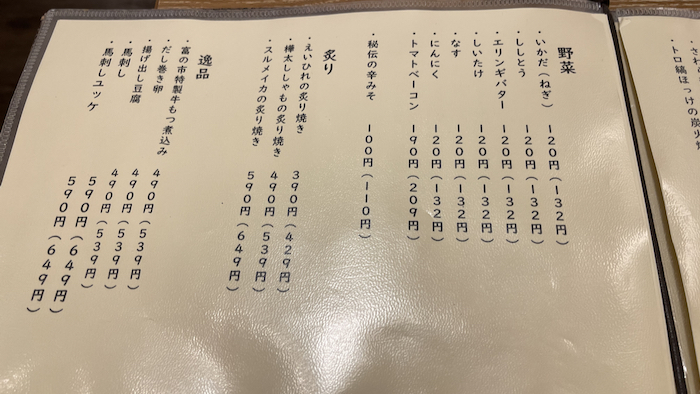 さわ
トロ縞ほっけの炭
野菜
・いかだ（ねぎ） 120円（132円）
・ししとう 120円（132円）
・エリンギバター 120円（132円）
・しいたけ 120円（132円）
・なす 120円（132円）
・にんにく 120円（132円）
・トマトベーコン 190円（209円）
・秘伝の辛みそ 100円（110円）
炙り
・えいひれの炙り焼き 390円（429円）
・樺太ししゃもの炙り焼き 490円（539円）
・スルメイカの炙り焼き 590円（649円）
逸品
・富の市特製牛もつ煮込み 490円（539円）
・だし巻き卵 490円（539円）
・揚げ出し豆腐 490円（539円）
・馬刺し 590円（649円）
・馬刺しユッケ 590円（649円）